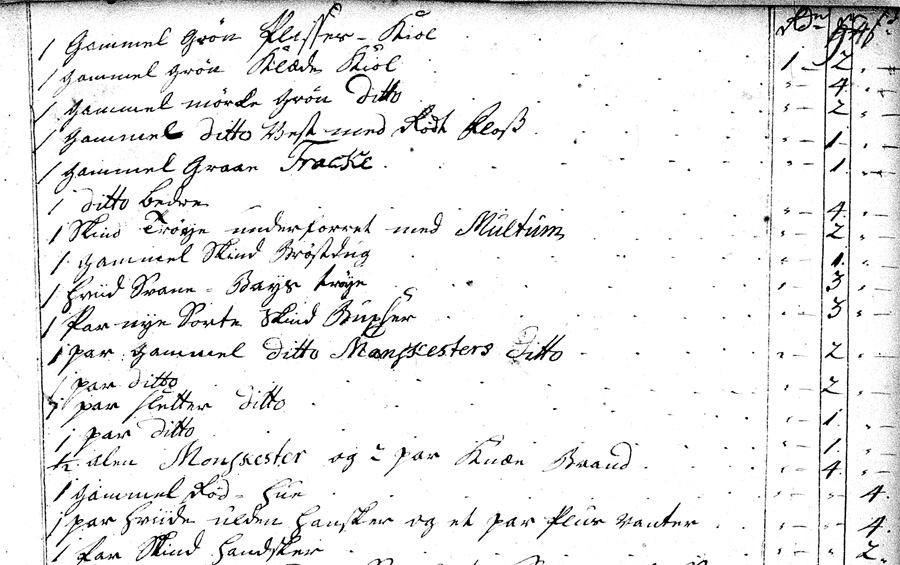 1 Gammel Grön Plisser-Kiol 1 – 2 . –
1 gammel grön Klæde Kiol " – 4 . –
1 gammel mörke grön Ditto " – 2 . –
1 gammel ditto Vest med Rödt Plosß " – 1 . –
1 gammel Graae Fracke " – 1 . –
1 ditto bedre " – 4 . –
1 Skind Tröye underforret med Multum " – 2 . –
1 gammel Skind Bröstdug " – 1 . –
1 hviid Svane-Bays tröye " – 3 . –
1 Par nye Sorte Skind Buxser " – 3 . –
1 par gammel ditto Manskesters Ditto " – 2 . –
1 par ditto " – 2 . –
1 par sletter ditto " – 1 . –
1 par ditto " – 1 . –
1/2 alen Monskester og 2 par Knæe Braand " – 4 . –
1 gammel Röd-hue " – " – 4 .
1 par hviide ulden hansker og et par Plus vanter " – " – 4 .
1 Par Skind handsker " – " – 2 .